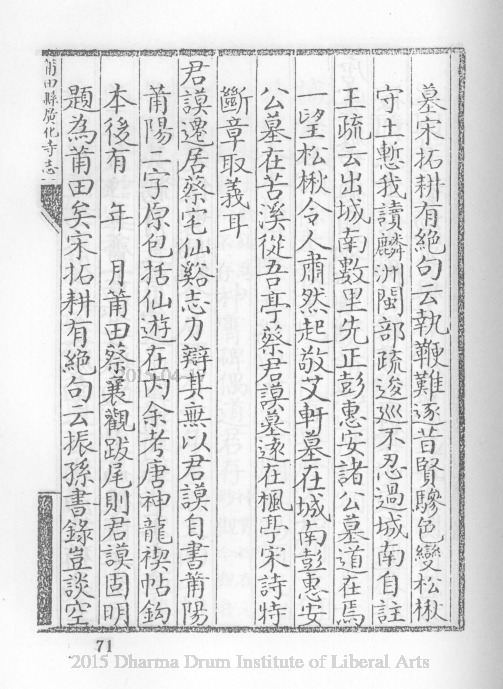 墓宋拓耕有絶句云執鞭難逐昔賢驂色變松楸
守土慙我讀麟洲閩部疏逡巡不忍過城南自註
王疏云出城南數里先正彭惠安諸公墓道在焉
一望松楸令人肅然起敬艾軒墓在城南彭惠安
公墓在苦溪從吾亭蔡君謨墓遠在楓亭宋詩特
斷章取義耳
君謨遷居蔡宅仙谿志力辯其無以君謨自書莆陽
莆陽二字原包括仙遊在内余考唐神龍禊帖鈎
本後有 年 月莆田蔡襄觀跋尾則君謨固明
題為莆田矣宋拓耕有絶句云振孫書錄豈談空
莆田縣廣化寺志
71
2015 Dharma Drum Institute of Liberal Arts